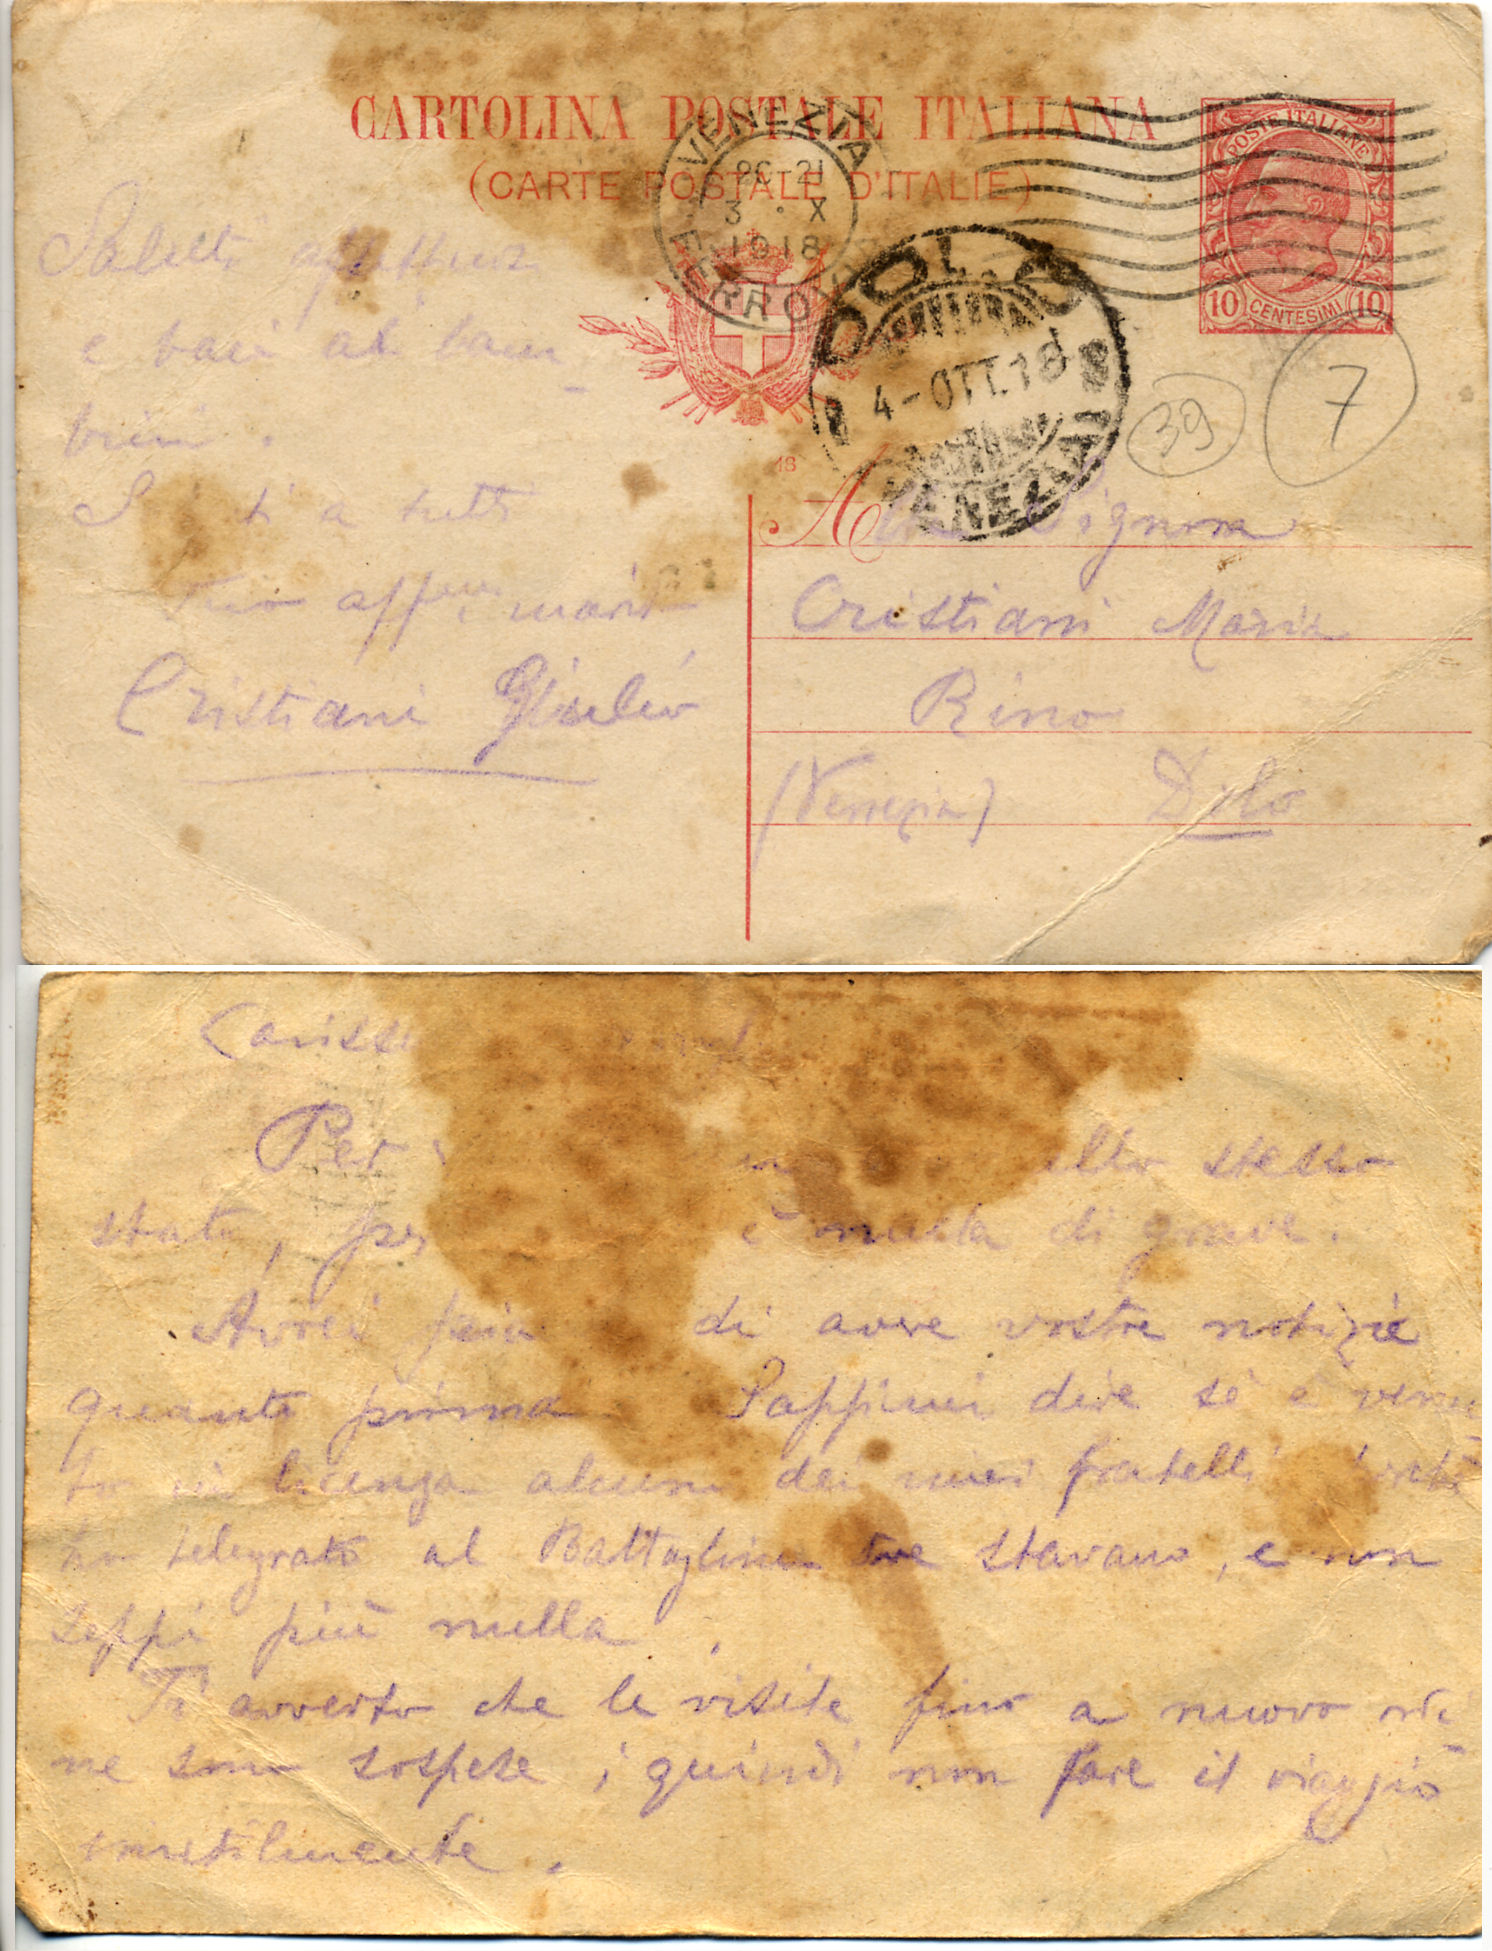 CARTOLINA POSTALE ITALIANA
(CARTE POSTALE D'ITALIE)
VENEZIA
FERROVIA
20-21
3 · X
1918
POSTE ITALIANE
10 CENTESIMI 10
DOLO
4-OTT.18
VENEZIA
39
7
18
Saluti affettuosi
e baci ai bam
bini.
S ti a tutti
Tuo aff.mo marito
Cristiani Giulio
Alla Signora
Cristiani Maria
Rino
(Venezia) Dolo
Cariss
Per ello stesso
stato, per è nulla di grave.
Avrei di avere vostre notizie
quanto prima Sappimi dire se è venu
to in licenza alcuni dei miei fratelli
ho telegrato al Battaglione ove stavano, e non
seppi più nulla.
Ti avverto che le visite fino a nuovo ordi
ne sono sospese; quindi non fare il viaggio
inutilmente.